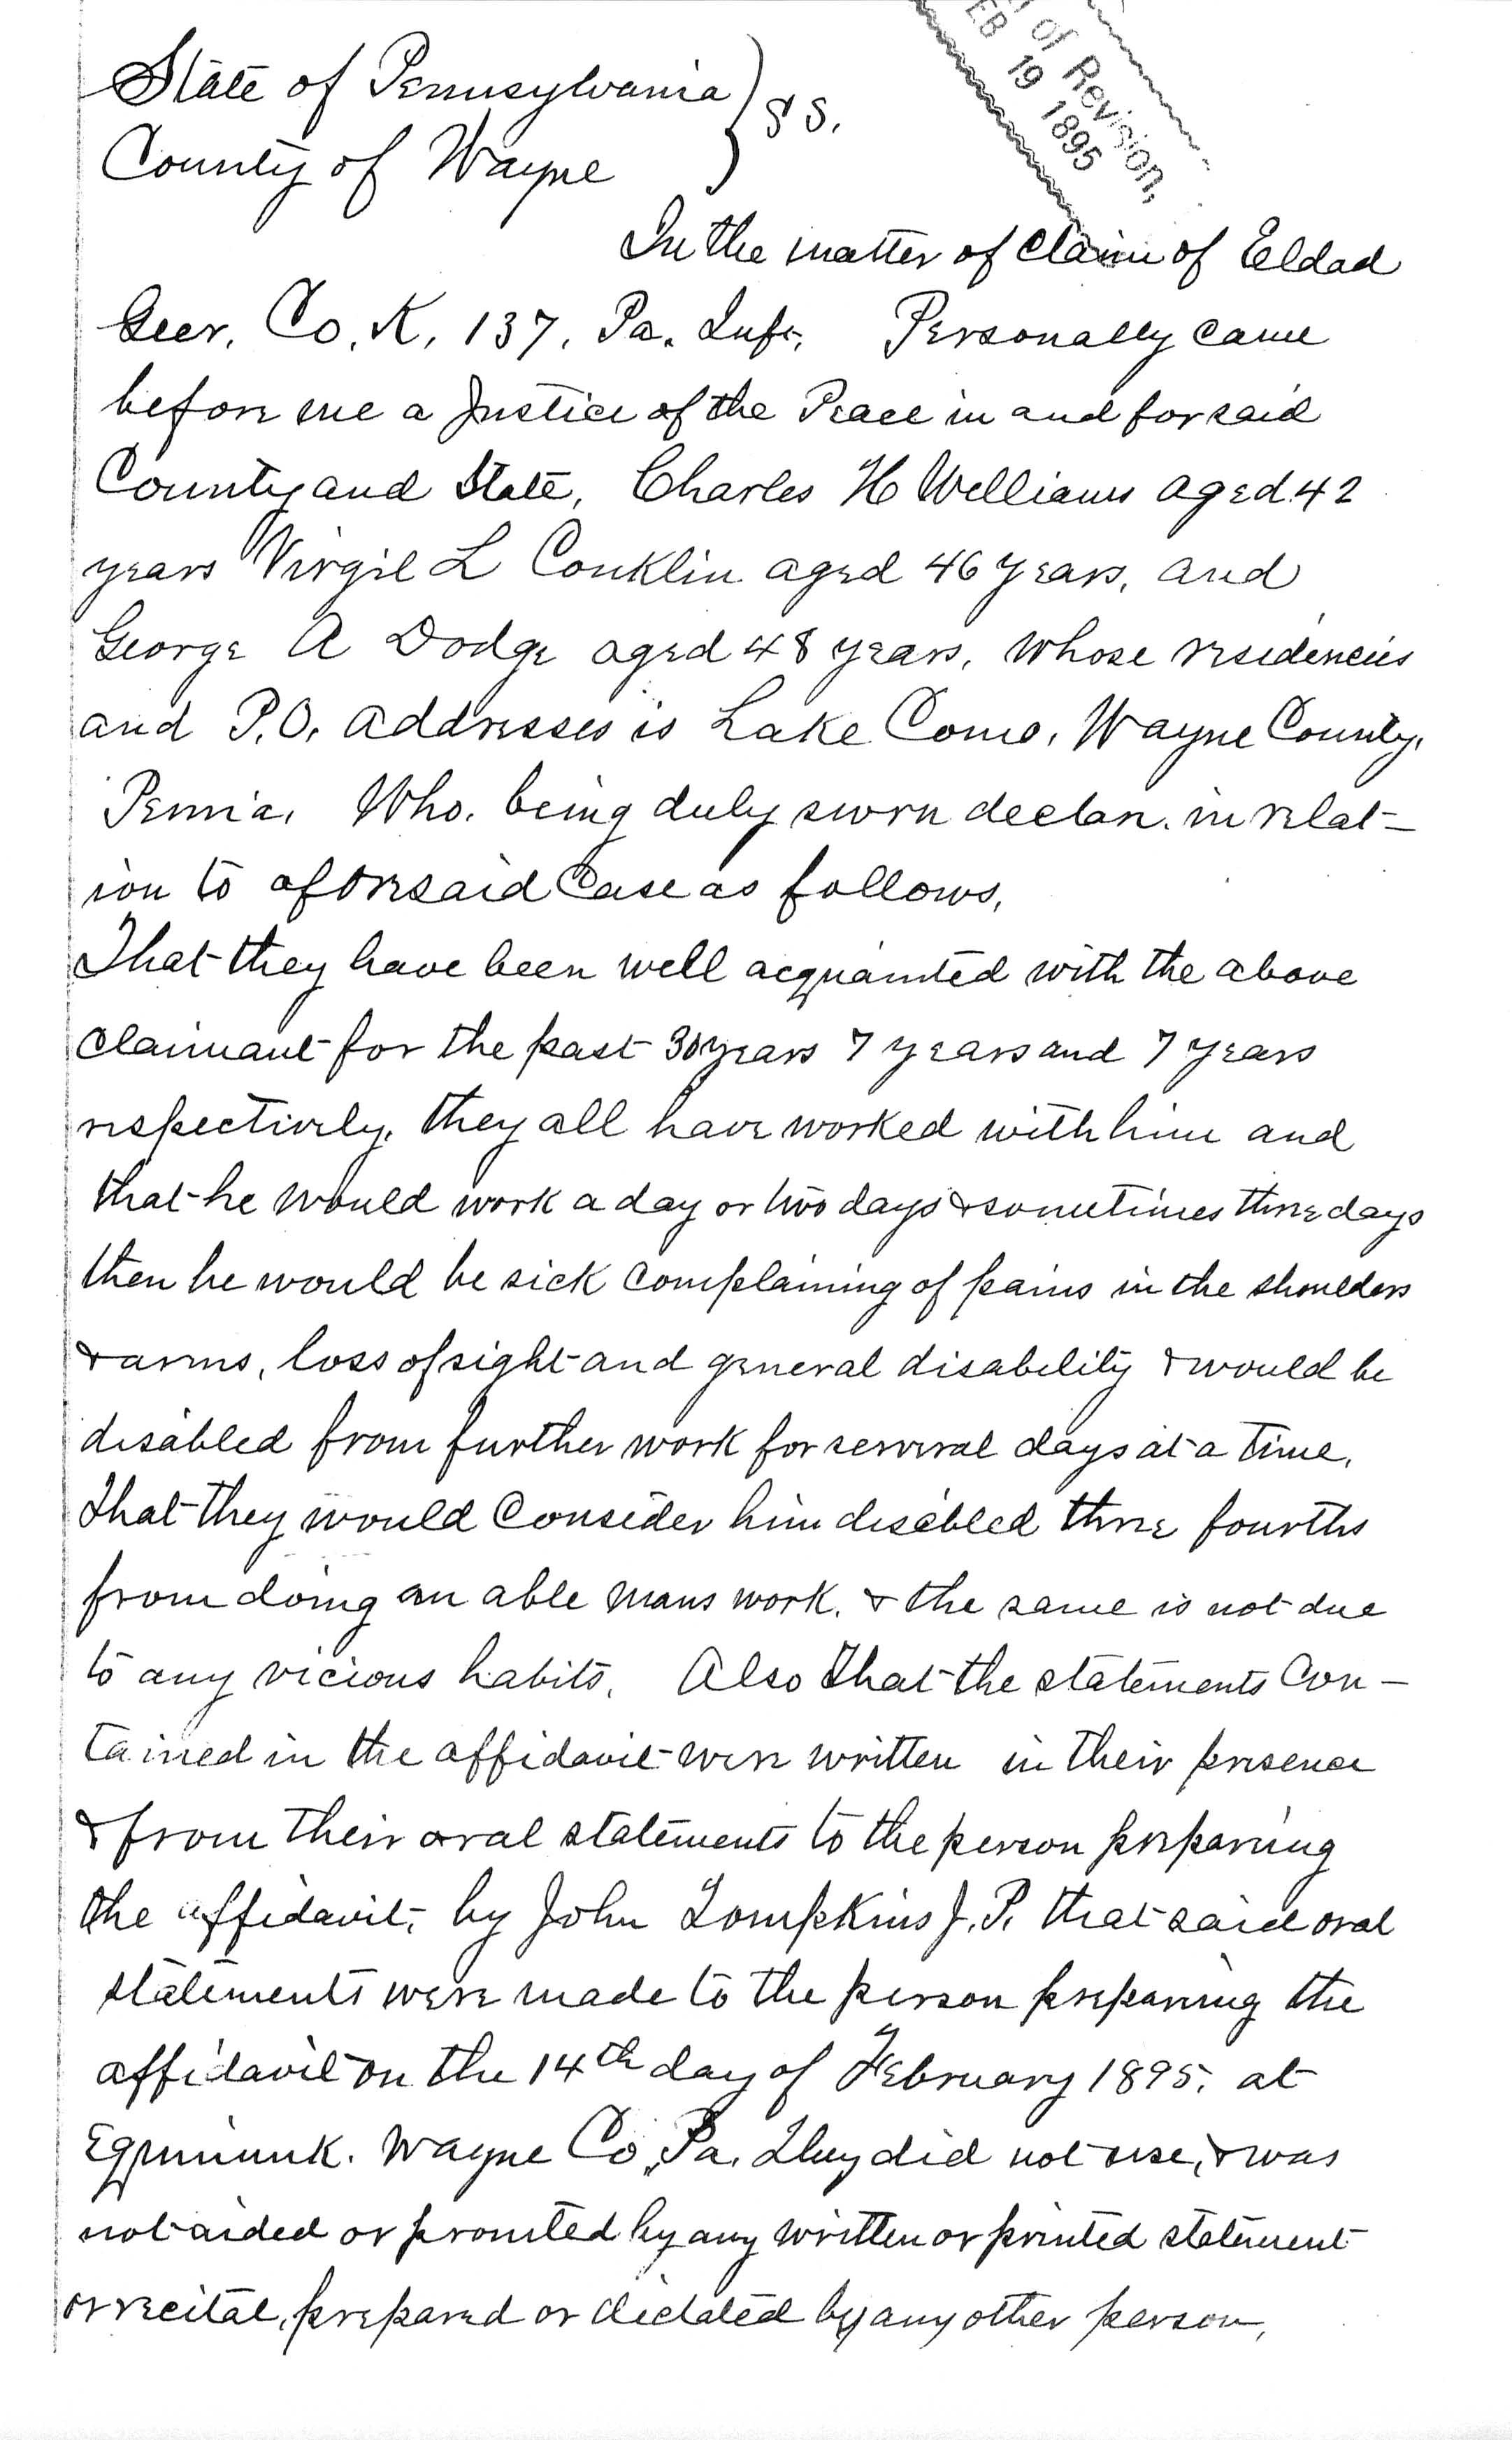 of Revision,
FEB 19 1895
State of Pennsylvania } SS.
County of Wayne
In the matter of claim of Eldad
Geer, Co. K, 137, Pa. Inft, Personally came
before me a Justice of the Peace in and for said
County and State, Charles H Williams aged 42
years Virgil L Conklin aged 46 years, and
George A Dodge aged 48 years, whose residencies
and P.O. addresses is Lake Como, Wayne County,
Penn'a, Who, being duly sworn declare in relat-
ion to aforesaid Case as follows,
That they have been well acquainted with the above
claimant for the past 30 years 7 years and 7 years
respectively, they all have worked with him and
that he would work a day or two days & sometimes three days
then he would be sick complaining of pains in the shoulders
& arms, loss of sight and general disability & would be
disabled from further work for serveral days at a time,
That they would Consider him disabled three fourths
from doing an able mans work. & the same is not due
to any vicious habits. Also that the statements Con-
tained in the affidavit were written in their presence
& from their oral statements to the person preparing
the affidavit, by John Tompkins J.P. that said oral
statements were made to the person preparing the
affidavit on the 14th day of February 1895, at
Equinunk. Wayne Co, Pa. They did not use, & was
not aided or promted by any written or printed statement
or recital, prepared or dictated by any other person,